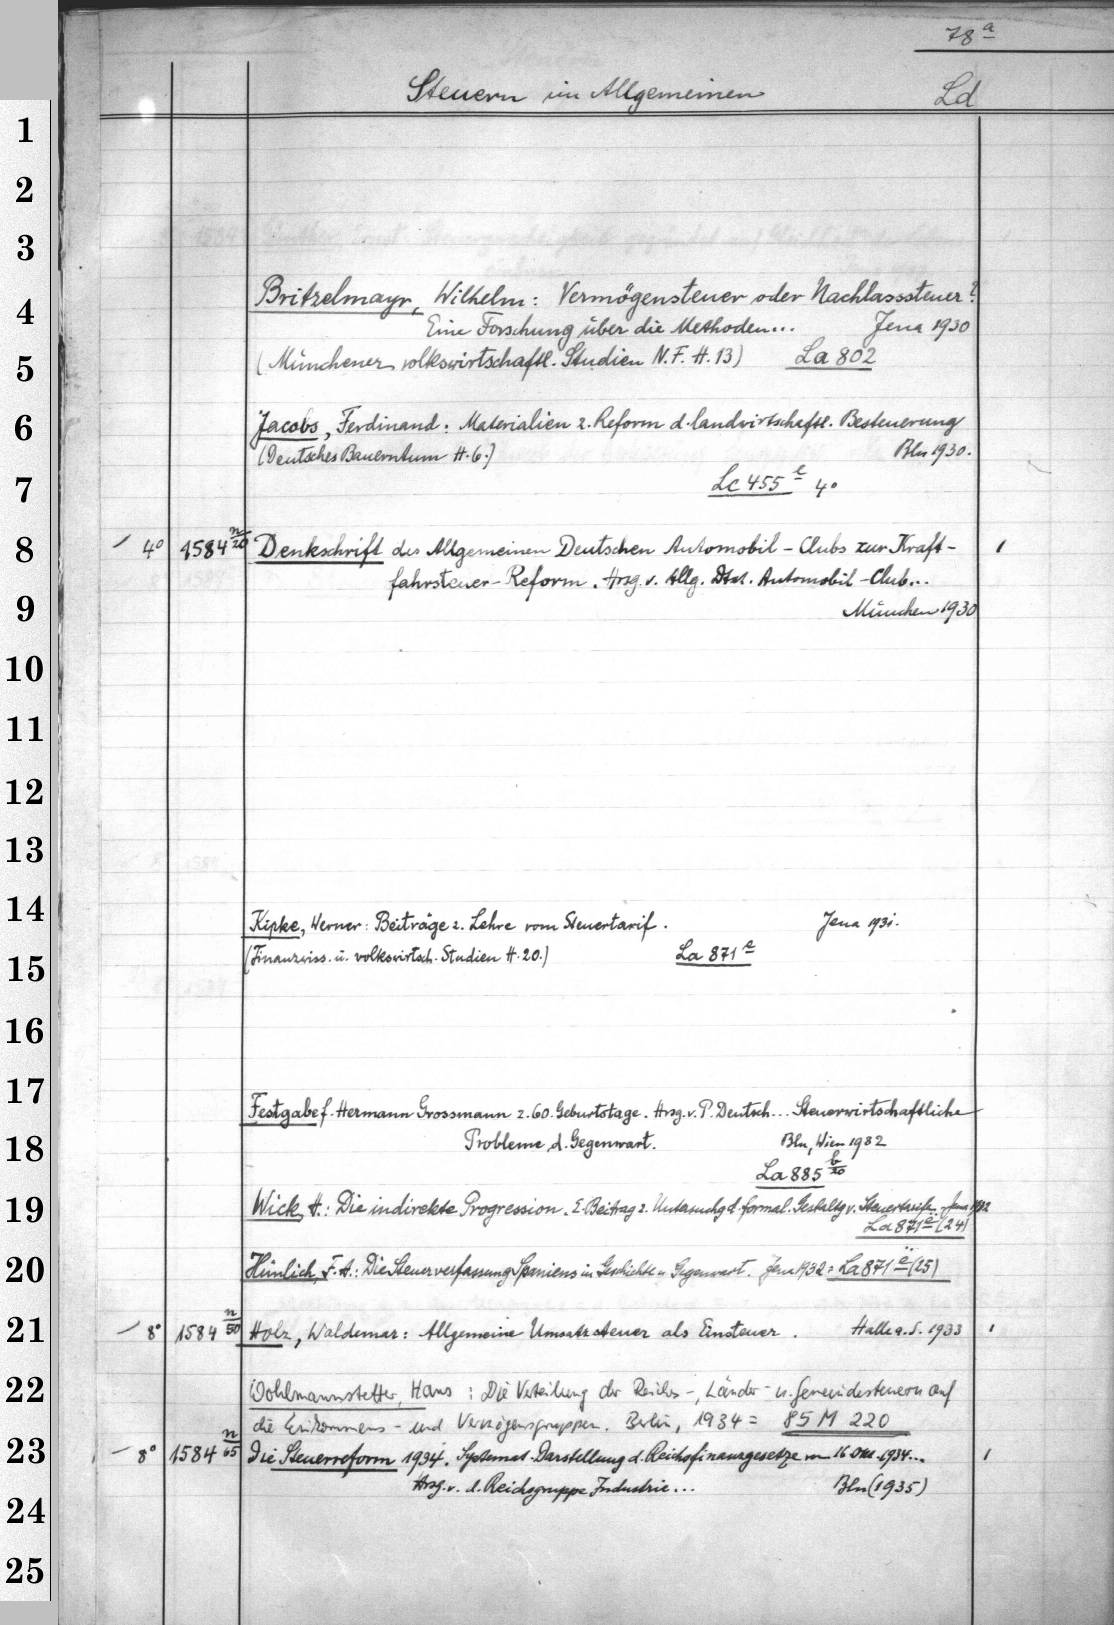 78 a
Steuern im Allgemeinen Ld
1
2
3
4
5
6
7
8
9
10
11
12
13
14
15
16
17
18
19
20
21
22
23
24
25
Britzelmayr, Wilhelm: Vermögensteuer oder Nachlasssteuer?
Eine Forschung über die Methoden... Jena 1930
(Münchener volkswirtschaftl. Studien N.F. H.13) La 802
Jacobs, Ferdinand: Materialien z. Reform d. landwirtschaftl. Besteuerung
(Deutsches Bauerntum H. 6.) Bln 1930.
Lc 455 e 4°
4° 1584 n/20 Denkschrift des Allgemeinen Deutschen Automobil-Clubs zur Kraft-
fahrsteuer-Reform. Hrsg. v. Allg. Dtsch. Automobil-Club...
München 1930
Kipke, Werner: Beiträge z. Lehre vom Steuertarif. Jena 1931.
(Finanzwiss. u. volkswirtsch. Studien H. 20.) La 871 e
Festgabe f. Hermann Grossmann z. 60. Geburtstage. Hrsg. v. P. Deutsch... Steuerwirtschaftliche
Probleme d. Gegenwart. Bln, Wien 1932
La 885 b/20
Wick, H.: Die indirekte Progression. E. Beitrag z. Untersuchg d. formal. Gestaltg v. Steuertarifen. Jena 1932
La 871 e (24)
Hünlich, F. A.: Die Steuerverfassung Spaniens in Geschichte u. Gegenwart. Jena 1932 = La 871 e (25)
8° 1584 n/50 Holz, Waldemar: Allgemeine Umsatzsteuer als Einsteuer. Halle a. S. 1933
Wohlmannstetter, Hans: Die Verteilung der Reichs-, Länder- u. Gemeindesteuern auf
die Einkommens- und Vermögensgruppen. Berlin, 1934 = 85 M 220
8° 1584 n/65 Die Steuerreform 1934. Systemat. Darstellung d. Reichsfinanzgesetze vom 16 Okt. 1934...
Hrsg. v. d. Reichsgruppe Industrie... Bln (1935)